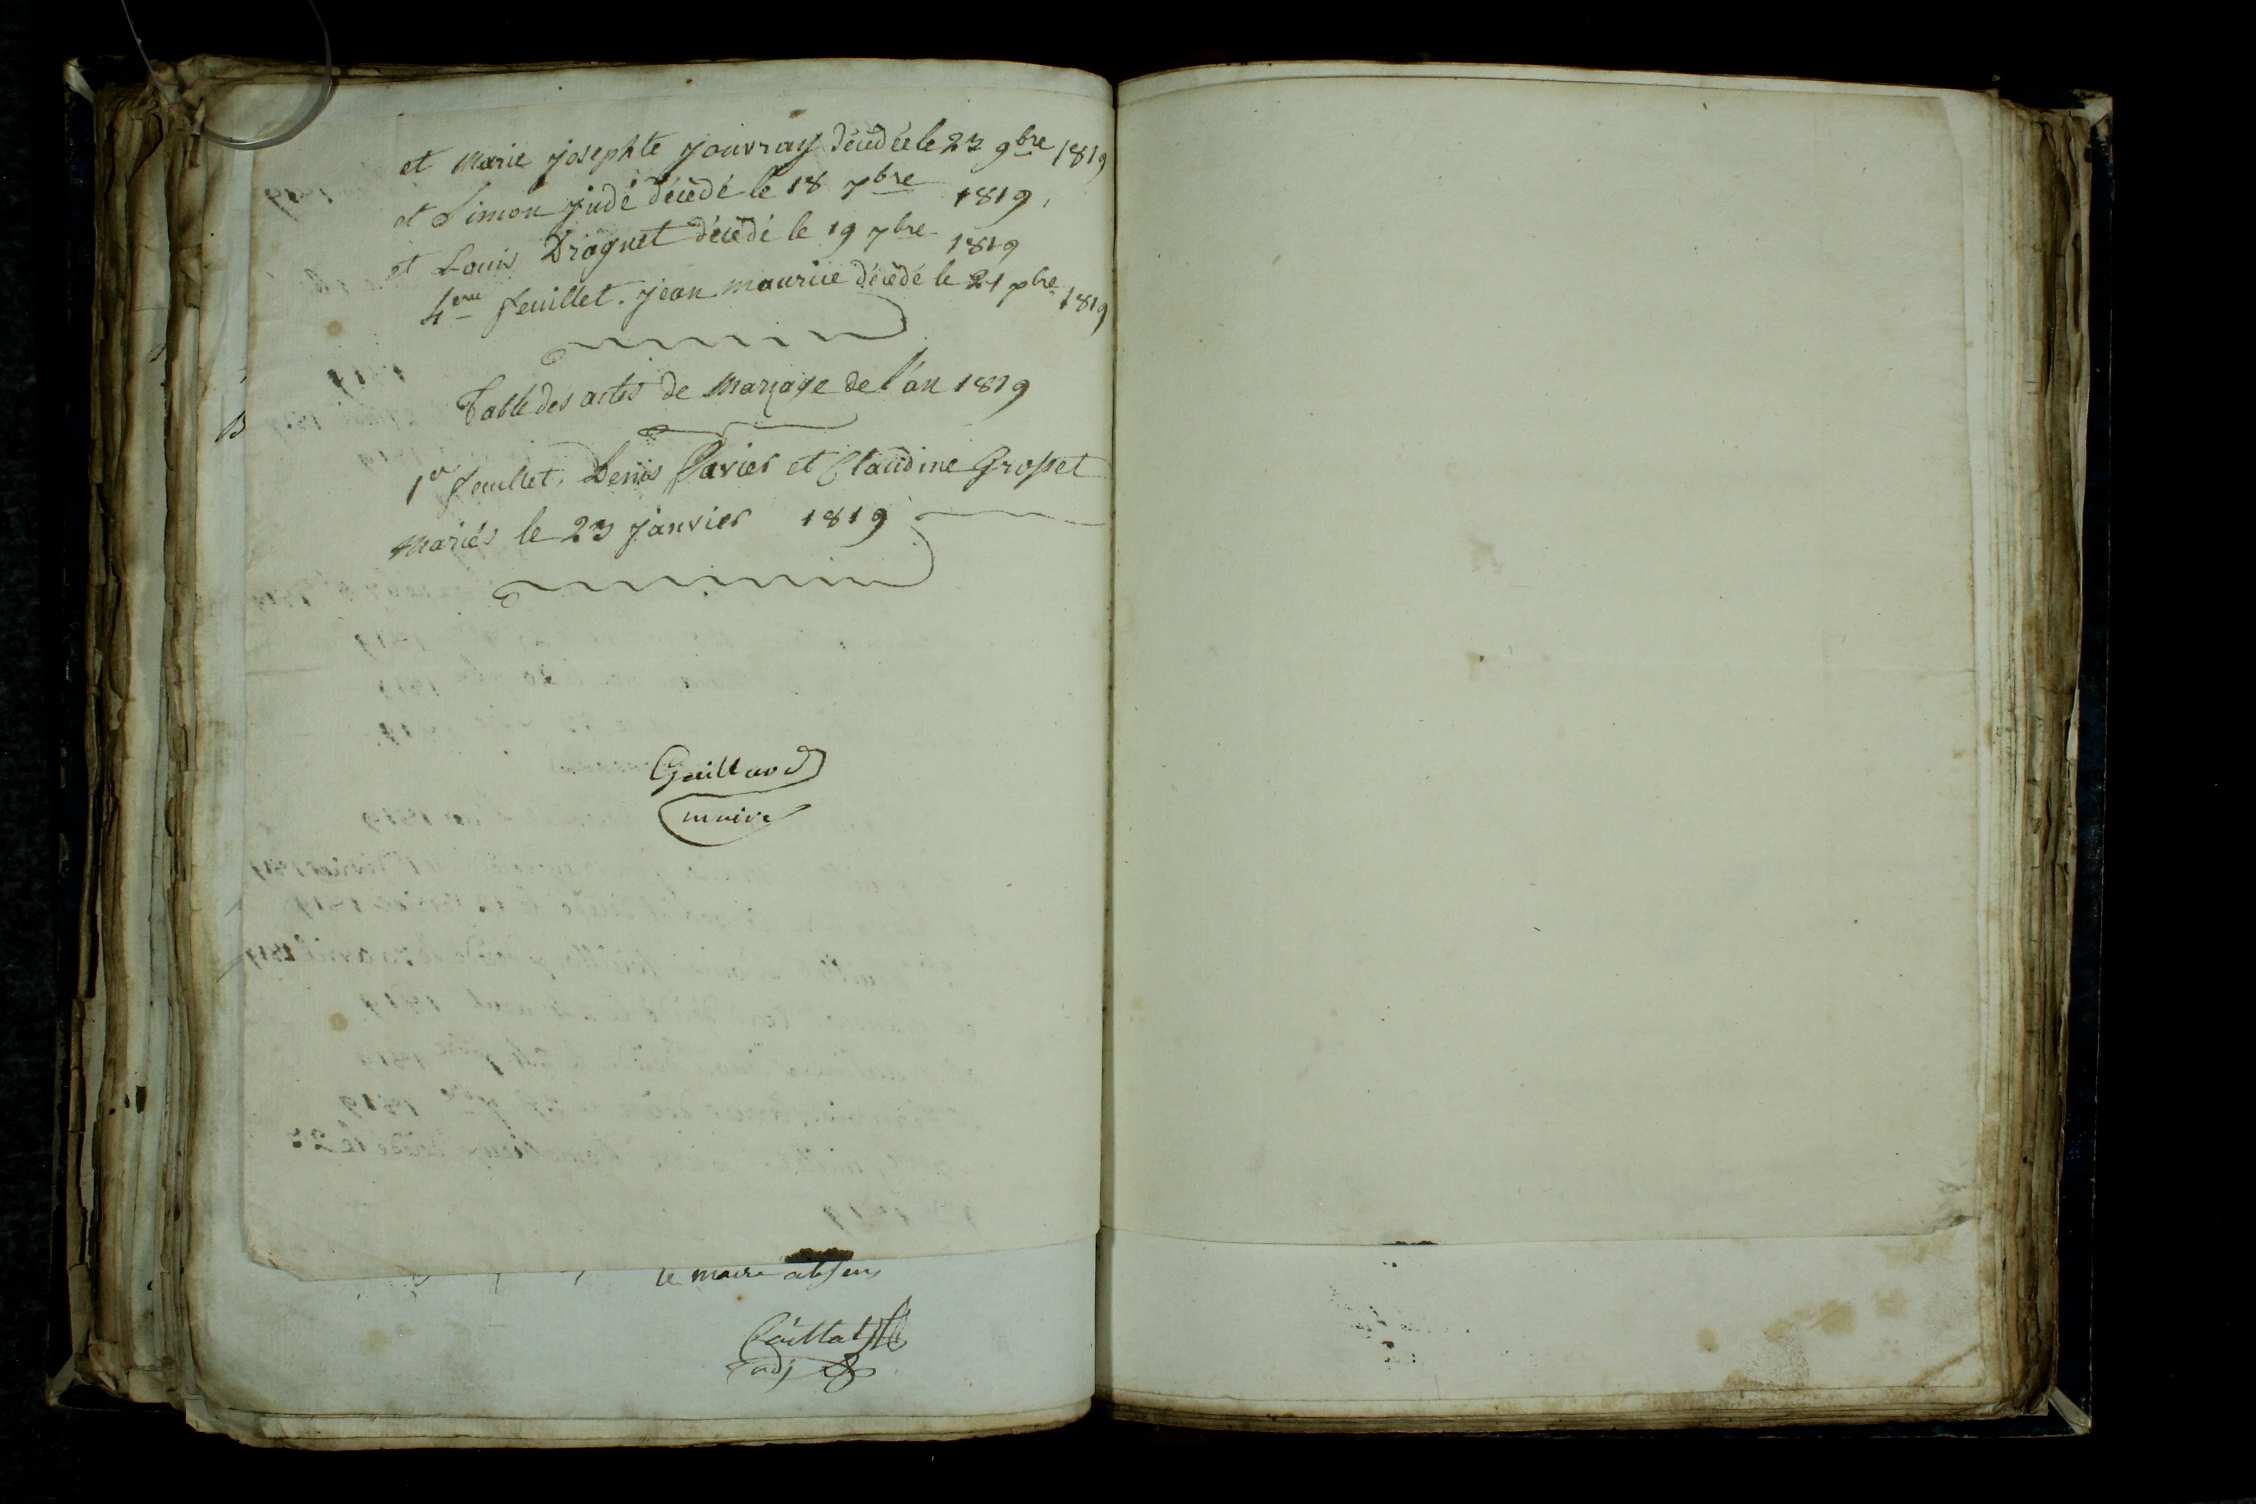 et Marie josephte jouvray décédée le 23 9bre 1819
et Simon judé décédé le 18 7bre 1819,
et Louis Draguet décédé le 19 7bre 1819
4eme feuillet. jean maurice décédé le 21 7bre 1819
Table des actes de Mariage de l'an 1819
1er feuillet, Denis Pavier et Claudine Grosset
Mariés le 23 janvier 1819
Gaillard
maire
le maire absent
adj